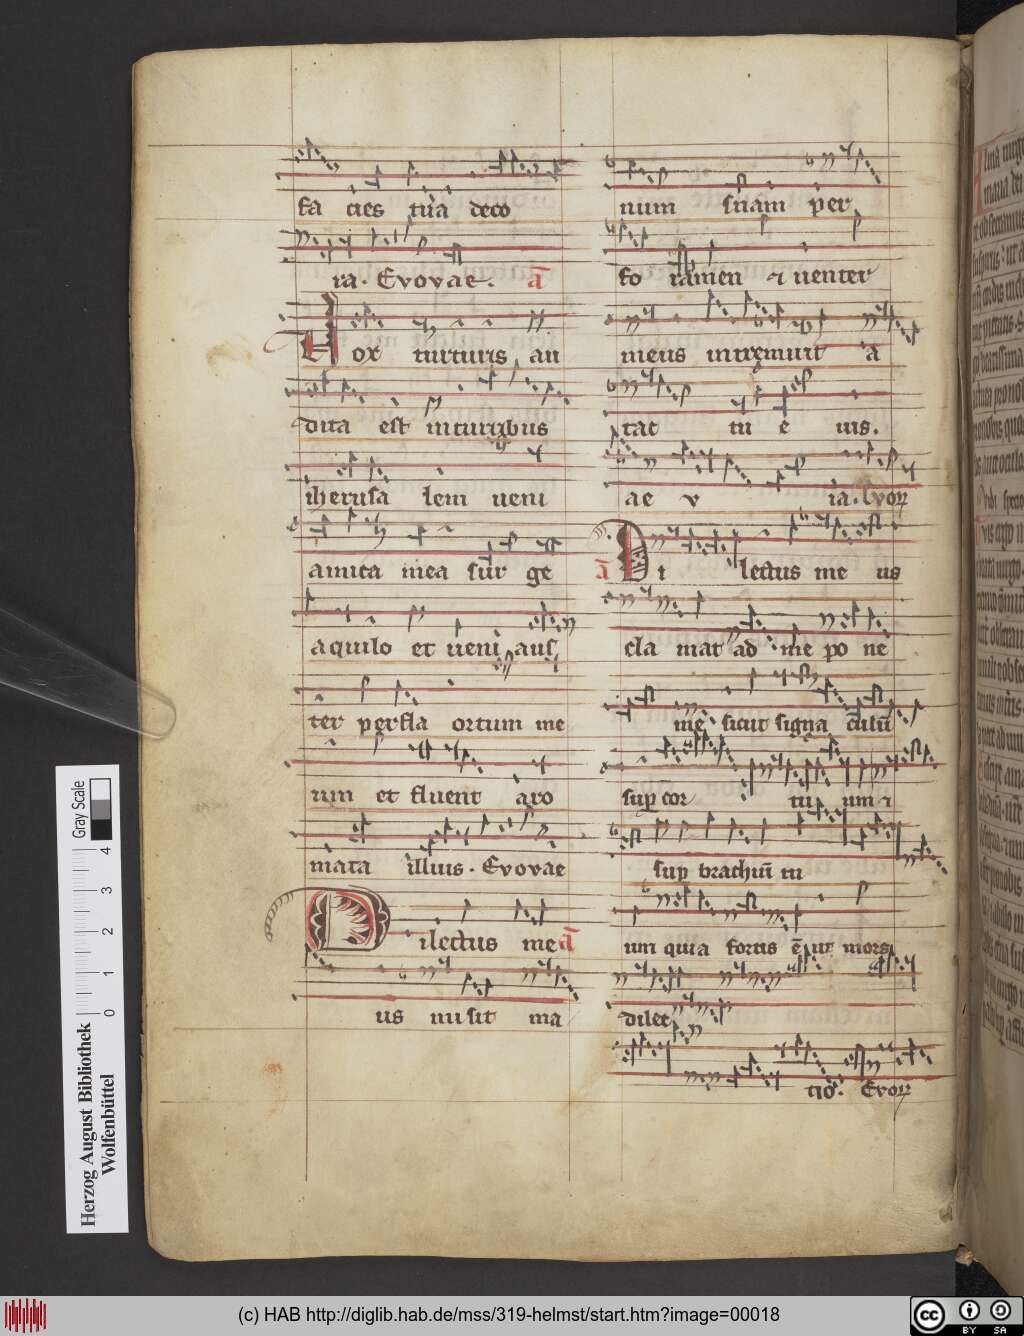 fa cies tua deco
ra. Evovae. a̅
Vox turturis au
dita est in turigbus
iherusa lem veni
amica mea sur ge
aquilo et veni aus
ter perfla ortum me
um et fluent aro
mata illius. Evovae
Dilectus me a̅
us misit ma
num suam per
fo ramen ⁊ venter
meus intremuit a
tac tu e ius.
ae v ia. Evoꝝ
a̅ Di lectus me us
cla mat ad me po ne
me sicut signa
sup cor tu um ⁊
sup brachiū tu
um quia fortis ē ut mors
dilec
tiō. Evoꝝ
Gray Scale
0 1 2 3 4
Herzog August Bibliothek
Wolfenbüttel
(c) HAB http://diglib.hab.de/mss/319-helmst/start.htm?image=00018
cc BY SA